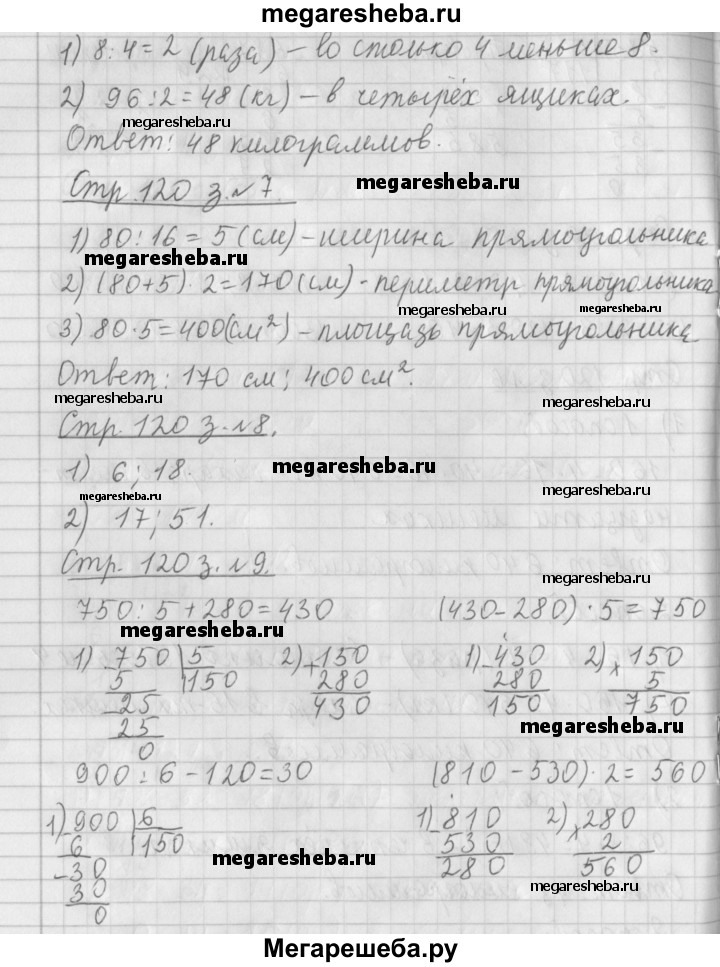 megaresheba.ru
1) 8:4=2 (раза) – во столько 4 меньше 8.
2) 96:2=48 (кг) – в четырёх ящиках.
megaresheba.ru
megaresheba.ru
Ответ: 48 килограммов.
Стр. 120 з. №7.
megaresheba.ru
1) 80:16=5 (см) – ширина прямоугольника
megaresheba.ru
2) (80+5)·2=170 (см) - периметр прямоугольника
megaresheba.ru
megaresheba.ru
3) 80·5=400 (см²) – площадь прямоугольника
Ответ: 170 см; 400 см².
megaresheba.ru
megaresheba.ru
Стр. 120 з. №8.
1) 6; 18.
megaresheba.ru
megaresheba.ru
2) 17; 51.
Стр. 120 з. №9.
megaresheba.ru
750:5+280=430 (430-280)·5=750
megaresheba.ru
1) -750 |5 2) +150 1) -430 2) ×150
5 150 280 280 5
-25 430 150 750
25
megaresheba.ru
0
900:6-120=30 (810-530)·2=560
1) -900 |6 1) -810 2) ×280
6 150 530 2
megaresheba.ru
-30 280 560
30
megaresheba.ru
0
Мегарешеба.ру